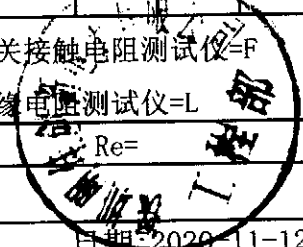 关接触电阻测试仪=F
缘电阻测试仪=L
Re=
工程部
日期:2020-11-12